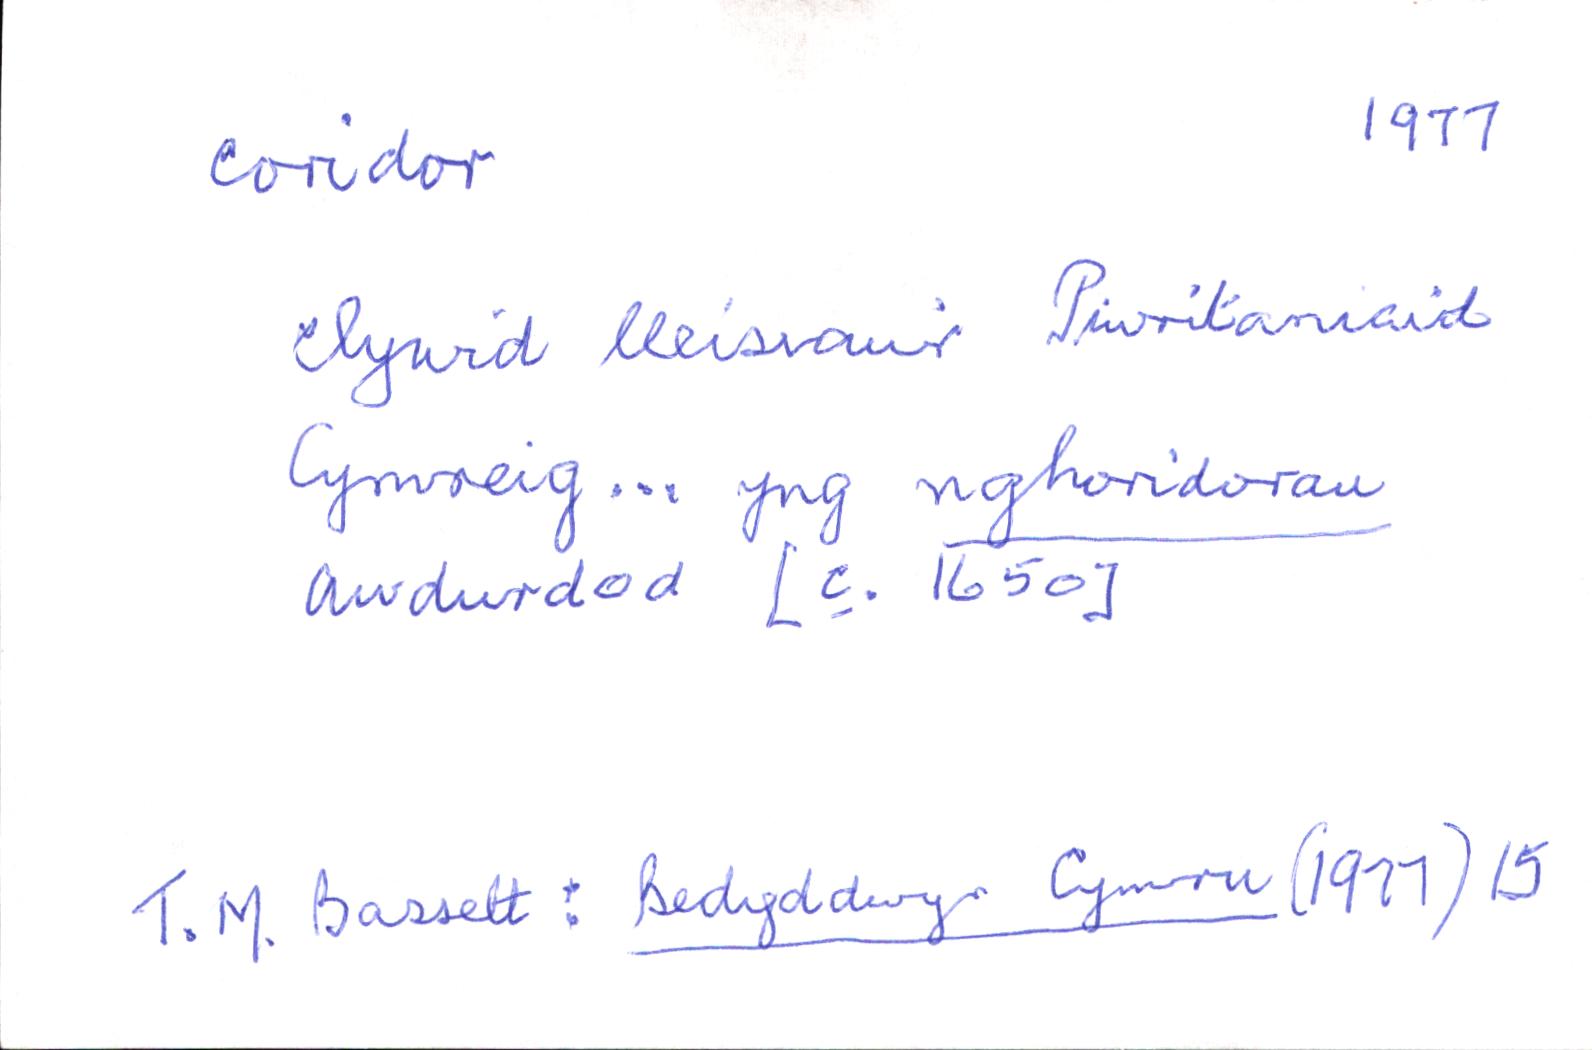 coridor 1977
clywid lleisiau'r Piwritaniaid
Cymreig... yng nghoridorau
awdurdod [c. 1650]
T. M. Bassett: Bedyddwyr Cymru (1977) 15